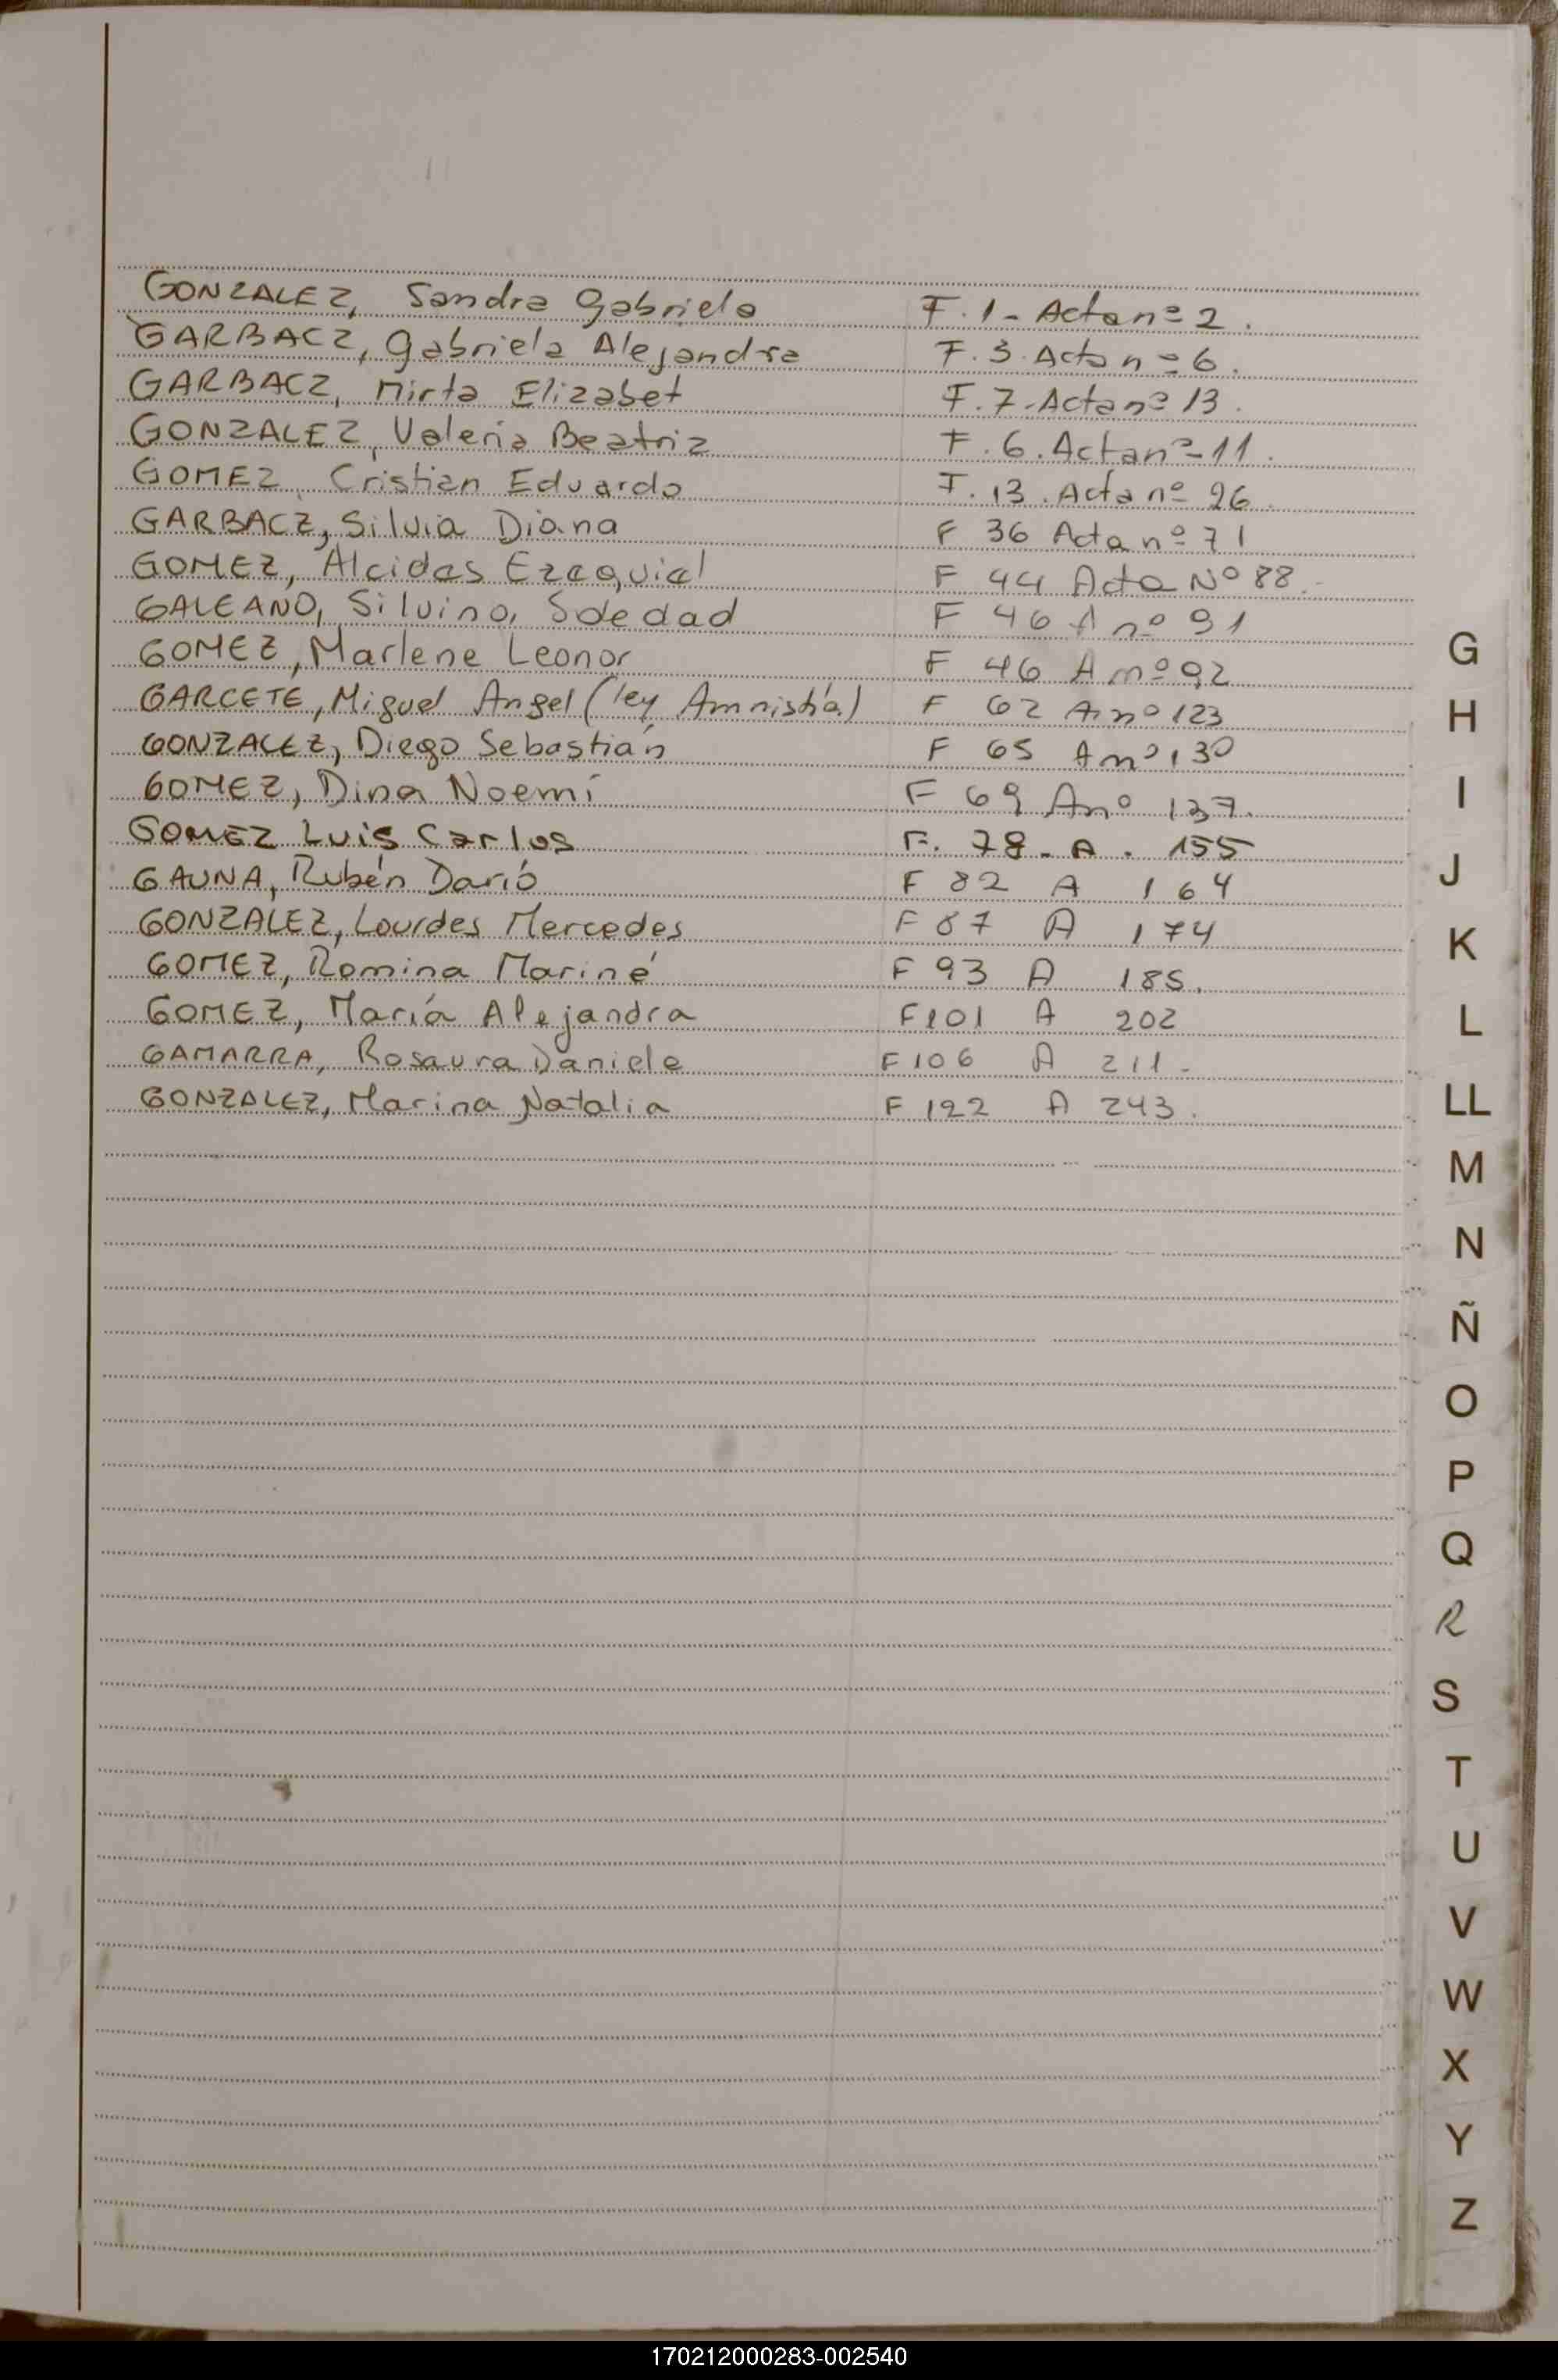 GONZALEZ, Sandra Gabriela F. 1- Acta nº 2.
GARBACZ, Gabriela Alejandra F. 3. Acta nº 6.
GARBACZ, Mirta Elizabet F. 7. Acta nº 13.
GONZALEZ, Valeria Beatriz F. 6. Acta nº 11.
GOMEZ, Cristian Eduardo F. 13. Acta nº 26.
GARBACZ, Silvia Diana F 36 Acta nº 71
GOMEZ, Alcidas Ezequiel F 44 Acta Nº 88.
GALEANO, Silvino, Soledad F 46 A nº 91
GOMEZ, Marlene Leonor F 46 A nº 92
GARCETE, Miguel Angel (ley Amnistía) F 62 A nº 123
GONZALEZ, Diego Sebastián F 65 A nº 130
GOMEZ, Dina Noemí F 69 A nº 137.
GOMEZ Luis Carlos F. 78 - A. 155
GAUNA, Rubén Darió F 82 A 164
GONZALEZ, Lourdes Mercedes F 87 A 174
GOMEZ, Romina Mariné F 93 A 185.
GOMEZ, María Alejandra F 101 A 202
GAMARRA, Rosaura Daniela F 106 A 211-
GONZALEZ, Marina Natalia F 122 A 243.
G
H
I
J
K
L
LL
M
N
Ñ
O
P
Q
R
S
T
U
V
W
X
Y
Z
170212000283-002540